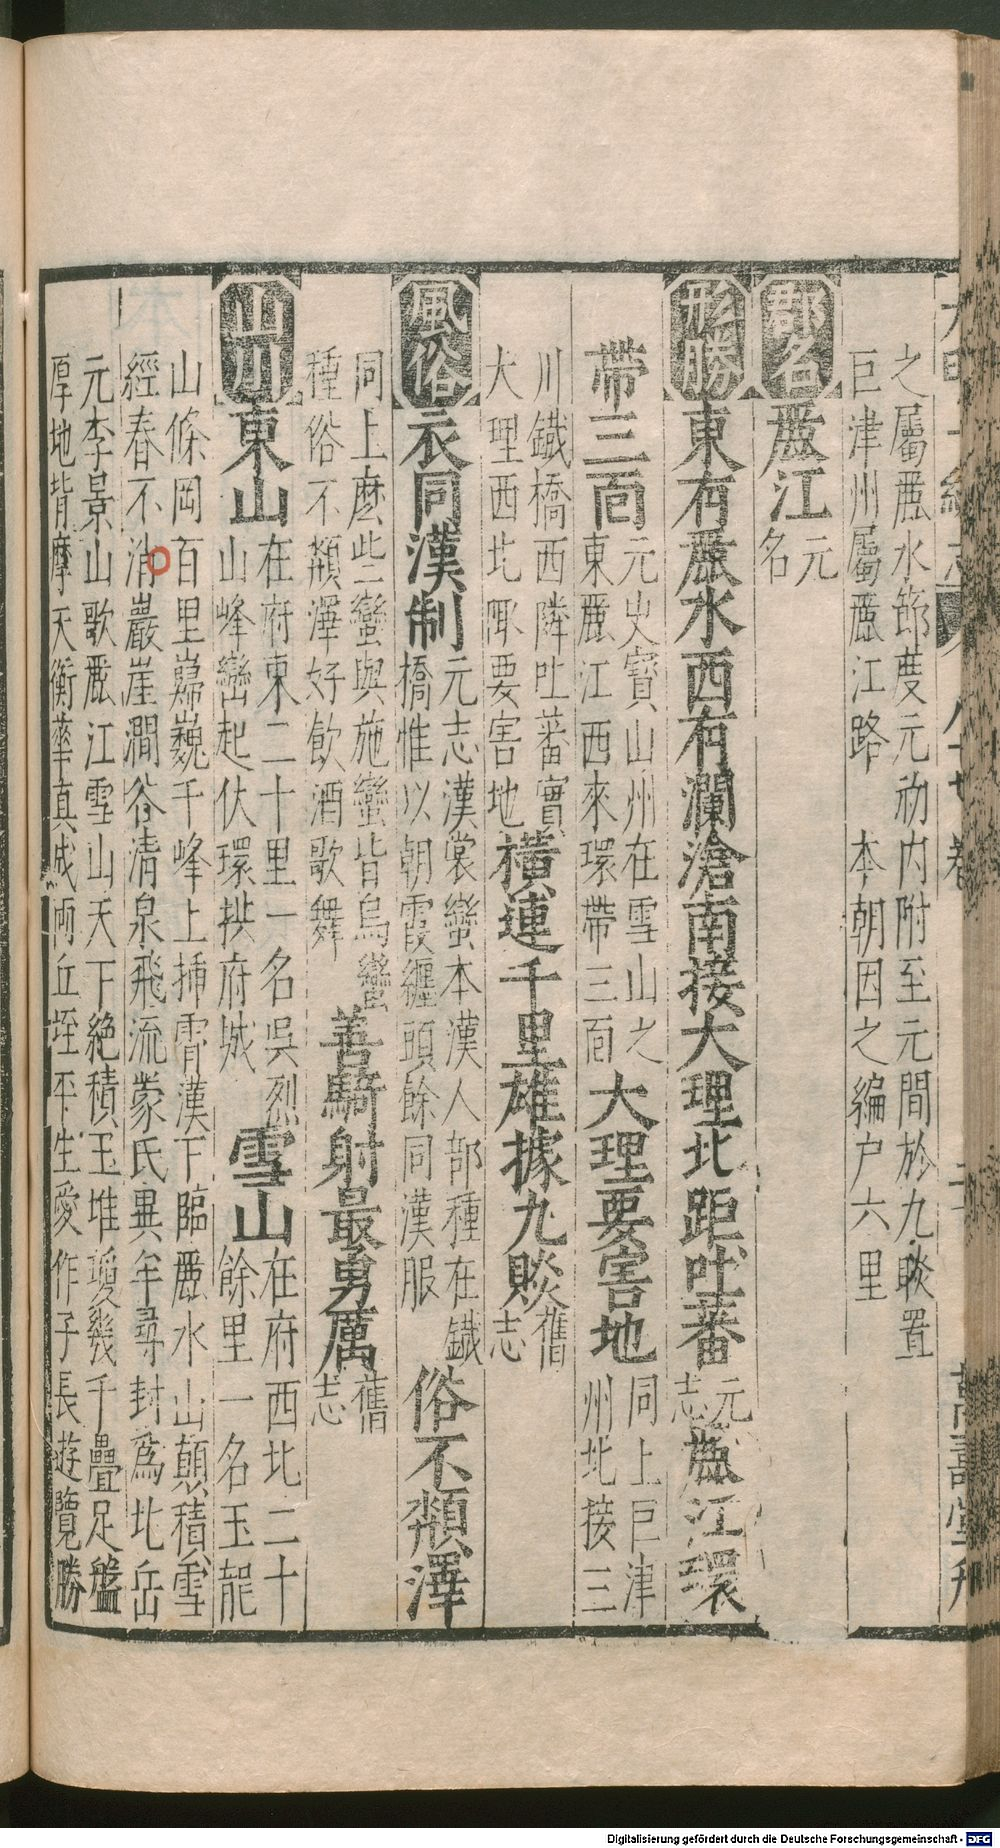 之屬麗水節度元初内附至元間於九賧置
巨津州屬麗江路 本朝因之編户六里
郡名 麗江 元名
形勝 東有麗水西有瀾滄南接大理北距吐蕃 元志 麗江環
帶三面 元史寶山州在雪山之東麗江西來環帶三面 大理要害地 同上巨津州北接三
川鐵橋西隣吐蕃實大理西北陬要害地 橫連千里雄據九賧 舊志
風俗 衣同漢制 元志漢裳蠻本漢人部種在鐵橋惟以朝霞纒頭餘同漢服 俗不頮澤
同上麽些蠻與施蠻皆烏蠻種俗不頮澤好飲酒歌舞 善騎射最勇厲 舊志
山川 東山 在府東二十里一名吳烈山峰巒起伏環拱府城 雪山 在府西北二十餘里一名玉龍
山條岡百里巋巍千峰上揷霄漢下臨麗水山顛積雪
經春不消巖崖澗谷清泉飛流蒙氏異牟尋封爲北岳
元李景山歌麗江雪山天下絶積玉堆瓊幾千疊足盤
厚地背摩天衡華真成兩丘垤平生愛作子長遊覽勝
Digitalisierung gefördert durch die Deutsche Forschungsgemeinschaft - DFG